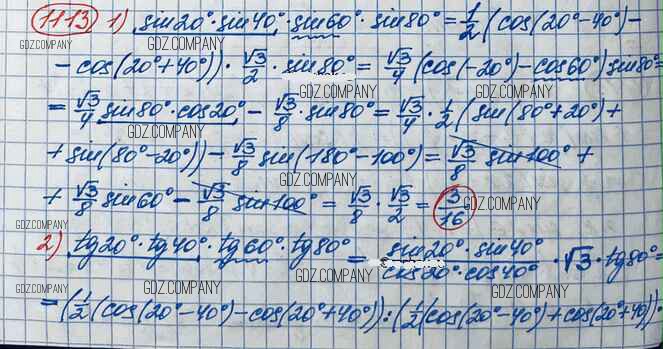 1113 1) sin20°·sin40°·sin60°·sin80°=1/2(cos(20°-40°)-
GDZ.COMPANY GDZ.COMPANY
-cos(20°+40°))·√3/2·sin80°=√3/4(cos(-20°)-cos60°)sin80°=
GDZ.COMPANY GDZ.COMPANY
=√3/4 sin80°·cos20°-√3/8·sin80°=√3/4·1/2(sin(80°+20°)+
GDZ.COMPANY GDZ.COMPANY
+sin(80°-20°))-√3/8 sin(180°-100°)=√3/8 sin100°+
GDZ.COMPANY
+√3/8 sin60°-√3/8 sin100°=√3/8·√3/2=3/16
GDZ.COMPANY GDZ.COMPANY
GDZ.COMPANY
2) tg20°·tg40°·tg60°·tg80°=sin20°·sin40°/cos20°·cos40°·√3·tg80°=
GDZ.COMPANY GDZ.COMPANY
GDZ.COMPANY GDZ.COMPANY
=(1/2(cos(20°-40°)-cos(20°+40°)):(1/2(cos(20°-40°)+cos(20°+40°))·